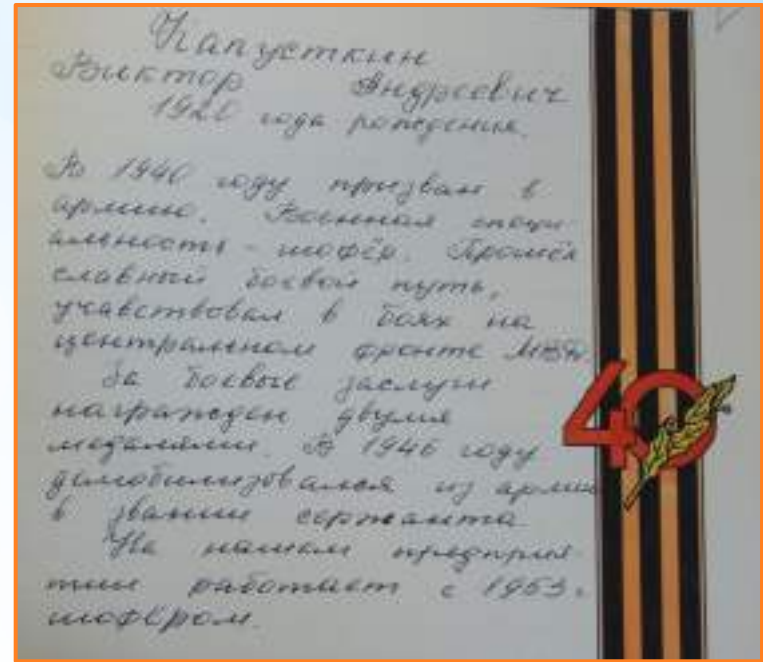 Капусткин
Виктор Андреевич
1920 года рождения.
В 1940 году призван в
армию. Военная специ-
альность - шофёр. Прошёл
славный боевой путь,
учавствовал в боях на
центральном фронте
За боевые заслуги
награжден двумя
медалями. В 1946 году
демобилизовался из армии
в звании сержанта
На нашем предприя-
тии работает с 1953 г.
шофёром.
40